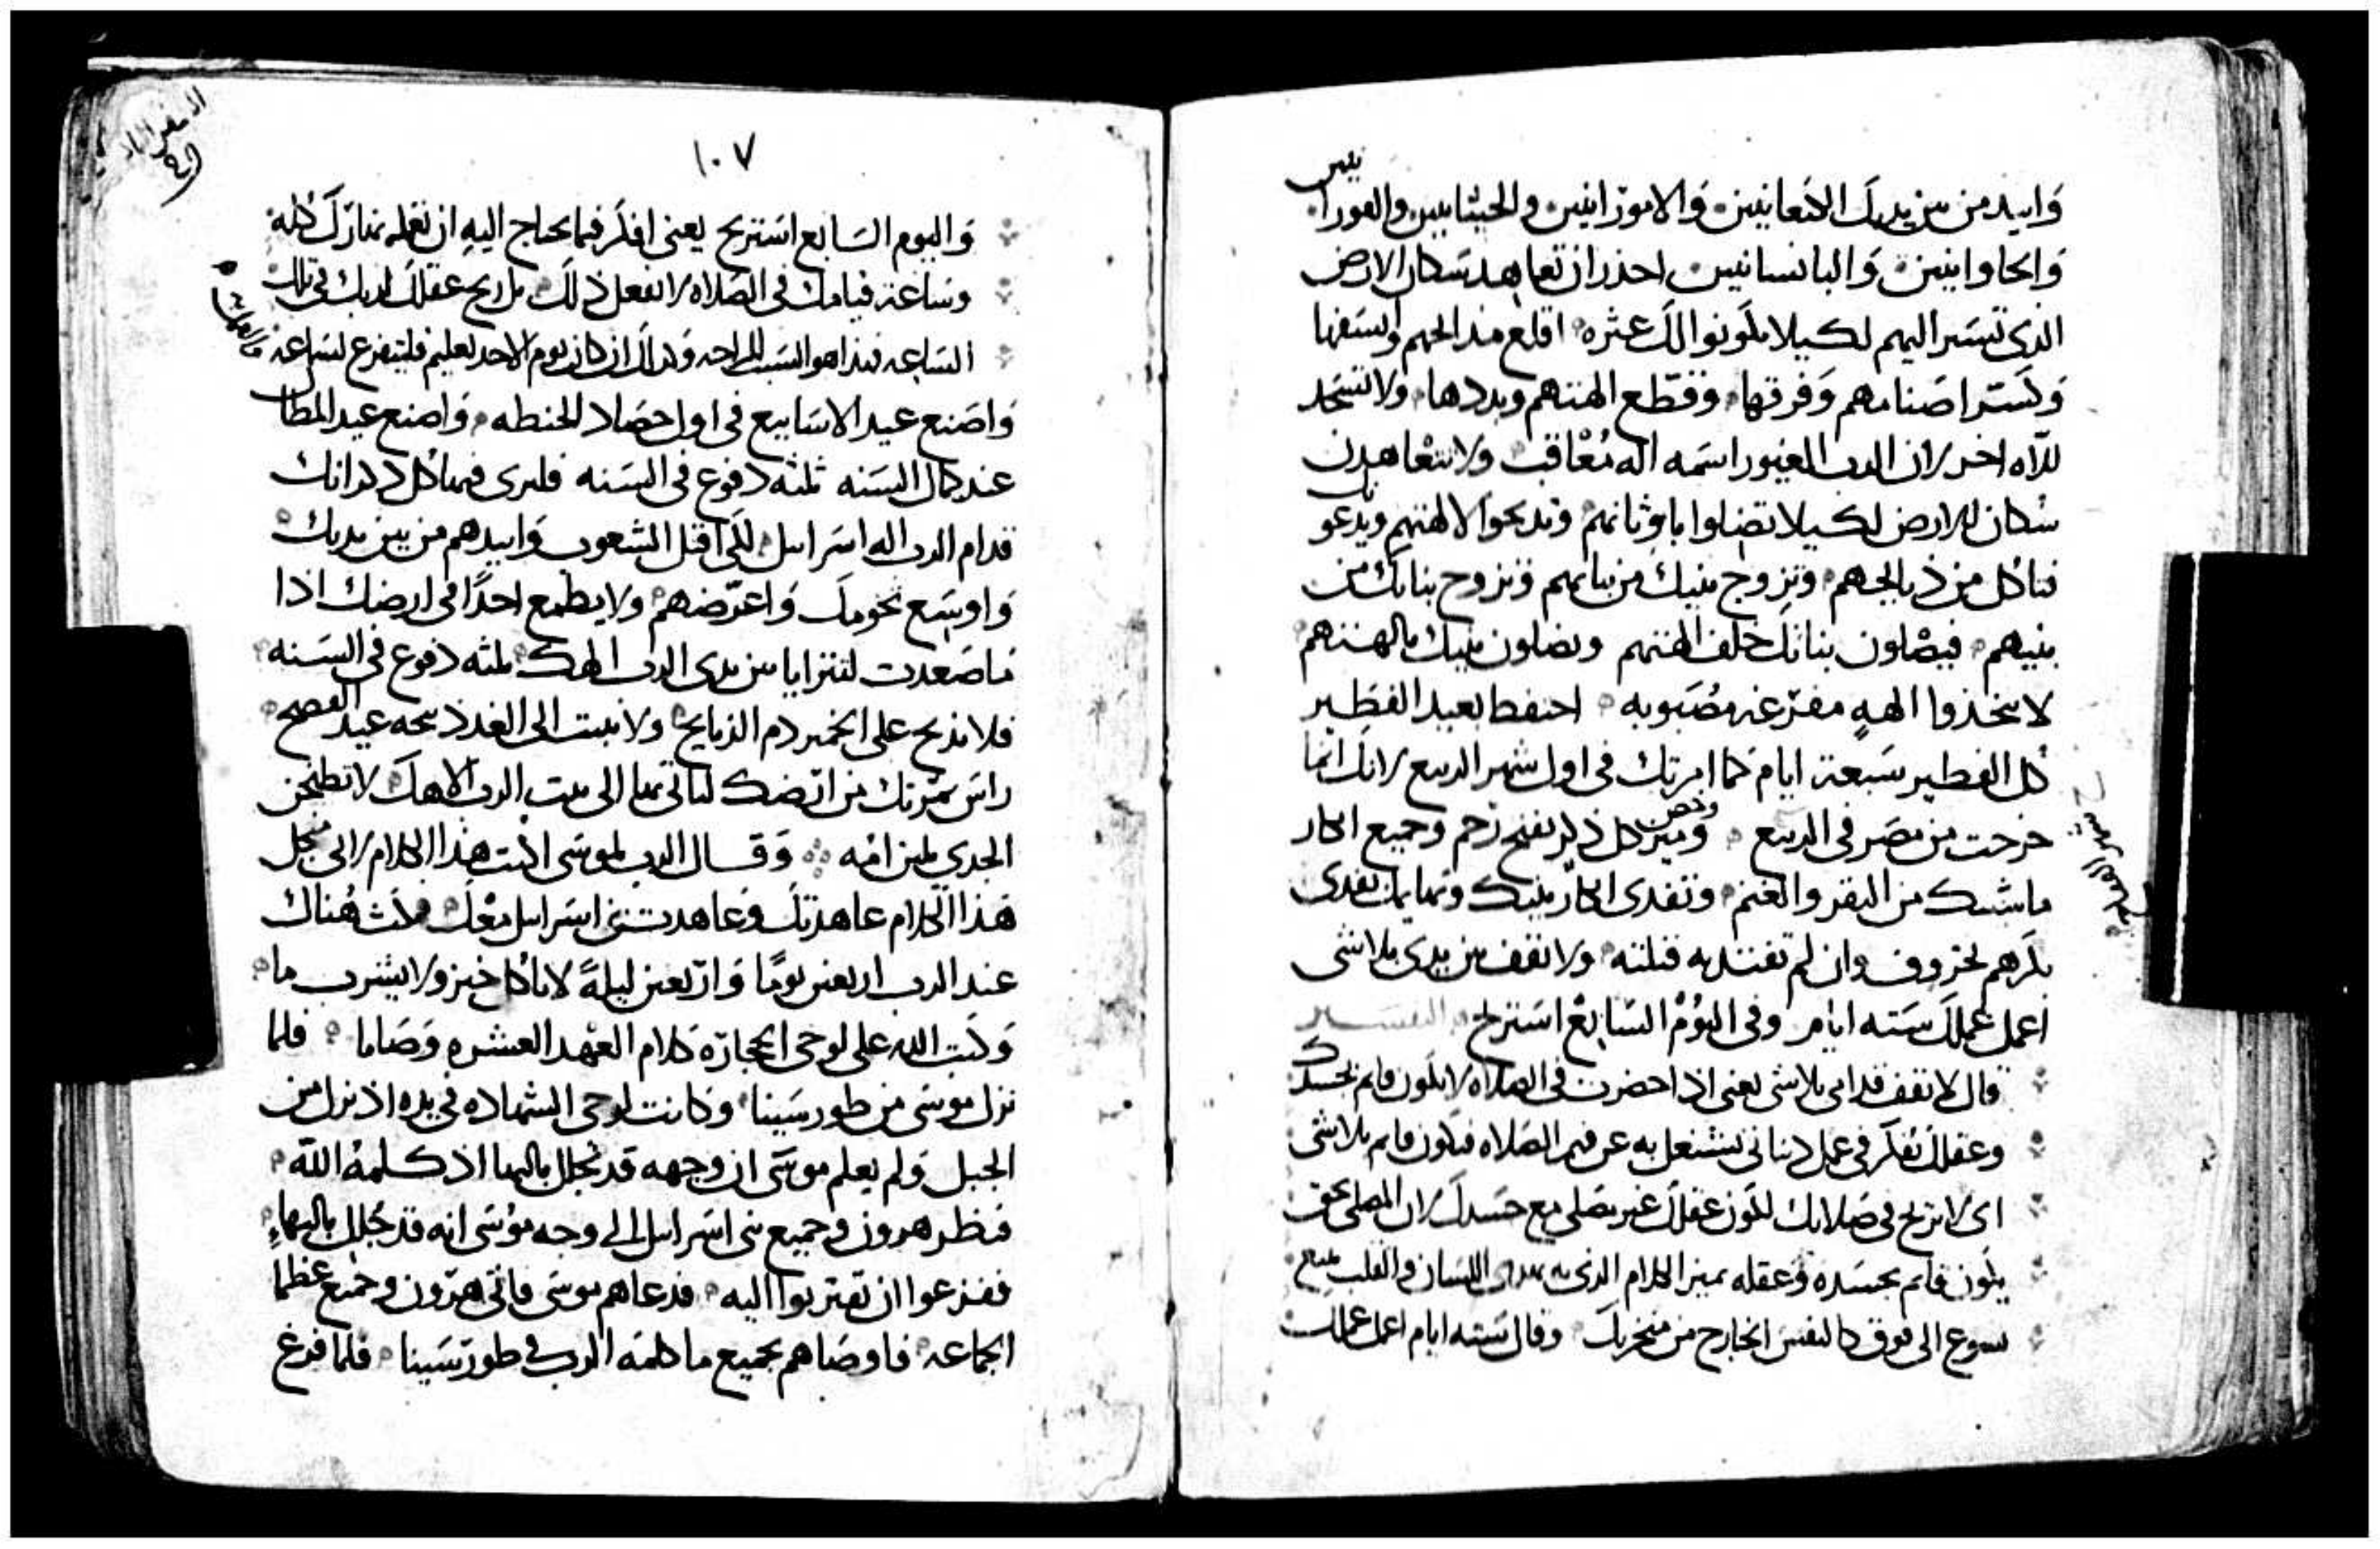 وابيد من بين يديك الكنعانيين والامورانيين والحيثانيين والفورا
نيين
والحاوانيين والبابسانيين احذر ان تعاهد سكان الارض
الذى تسير اليهم لكيلا يكونوا لك عثره اقلع مذابحهم واسقفها
وكسر اصنامهم وفرقها وقطع الهتهم وبددها ولا تسجد
للاه اخر لان الرب الغيور اسمه اله مُعاقب ولا تتعاهدن
سكان الارض لكيلا تضلوا باوثانهم وتذبحوا لالهتهم ويدعو
نك
فتاكل من ذبايحهم وتزوج بنيك من بناتهم وتزوج بناتك من
بنيهم فيضلون بناتك خلف الهتهم ويضلون بنيك بالهتهم
لا تتخذوا الهةٍ مفرغه مصبوبه احتفط بعيد الفطير
كل الفطير سبعة ايام كما امرتك فى اول شهر الربيع لانك انما
خرجت من مصر فى الربيع وميز كل ذكر يفتح رحم وجميع ابكار
ماشيتك من البقر والغنم وتفدى ابكار بنيك وبهايمك تفدى
بكرهم بخروف وان لم تفتديه قتلته ولا تقف بين يدى بلا شى
اعمل عملك سته ايام وفى اليوم السابع استريح التفسير
قال لا تقف قدامى بلا شى يعنى اذا حضرت فى الصلاه لا تكون قايم بجسدك
وعقلك يفكر فى عمل دنيانى يشتغل به عن فهم الصلاه فتكون قايم بلا شى
اى لا تربح فى صلاتك لكون عقلك غير مصلى مع جسدك لان المصلى بحق
يكون قايم بجسده وعقله يميز الكلام الذى اللسان والقلب
الى فوق كالنفس الخارج من منخريك وقال سته ايام اعمل عملك
١٠٧
واليوم السابع استريح يعنى افكر فيما يحتاج اليه ان تعمله نهارك كله
وساعة قيامك فى الصلاه لا تفعل ذلك بل اريح عقلك لديك فى تلك
الساعه فهذا هو السبت الراحه وكذلك ان كان يوم الاحد فليتفرغ لساعة
واصنع عيد الاسابيع فى اول حصاد الحنطه واصنع عيد المظال
عند كمال السنه ثلثه دفوع فى السنه فليرى فيها كل ذكرانك
قدام الرب اله اسراىل لكى اقتل الشعوب وابيدهم من بين يديك
واوسع تخومك واعرضهم ولا يطمع احدًا فى ارضك اذا
ما صعدت لتترايا بين يدى الرب الهك ثلثه دفوع فى السنه
فلا تذبح على الخمير دم الذبايح ولا تبيت الى الغد ذبيحه عيد الفصح
راس ثمرتك من ارضك لتاتى بها الى بيت الرب الاهك لا تطبخن
الجدى بلبن امه وقال الرب لموسى اكتب هذا الكلام لانى من اجل
هذا الكلام عاهدتك وعاهدت بنى اسراىل معك فمكث هناك
عند الرب اربعين يومًا واربعين ليلةً لا ياكل خبز ولا يشرب ما
وكتب الله على لوحى الحجاره كلام العهد العشره وصايا فلما
نزل موسى من طور سينا وكانت لوحى الشهاده فى يده اذ نزل من
الجبل ولم يعلم موسى ان وجهه قد تجلل بالبها اذ كلمه الله
فنظر هرون وجميع بنى اسراىل الى وجه موسى انه قد جُلل بالبهاء
ففزعوا ان تقتربوا اليه فدعاهم موسى فاتى هرون وجميع عظما
الجماعه فاوصاهم بجميع ما كلمه الرب فى طور سينا فلما فرغ